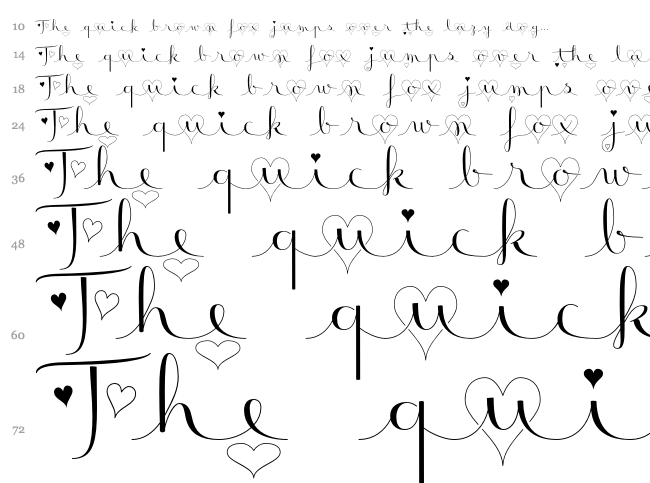 10 The quick brown fox jumps over the lazy dog...
14 The quick brown fox jumps over the la
18 The quick brown fox jumps ove
24 The quick brown fox ju
36 The quick brow
48 The quick b
60 The quick
72 The qui